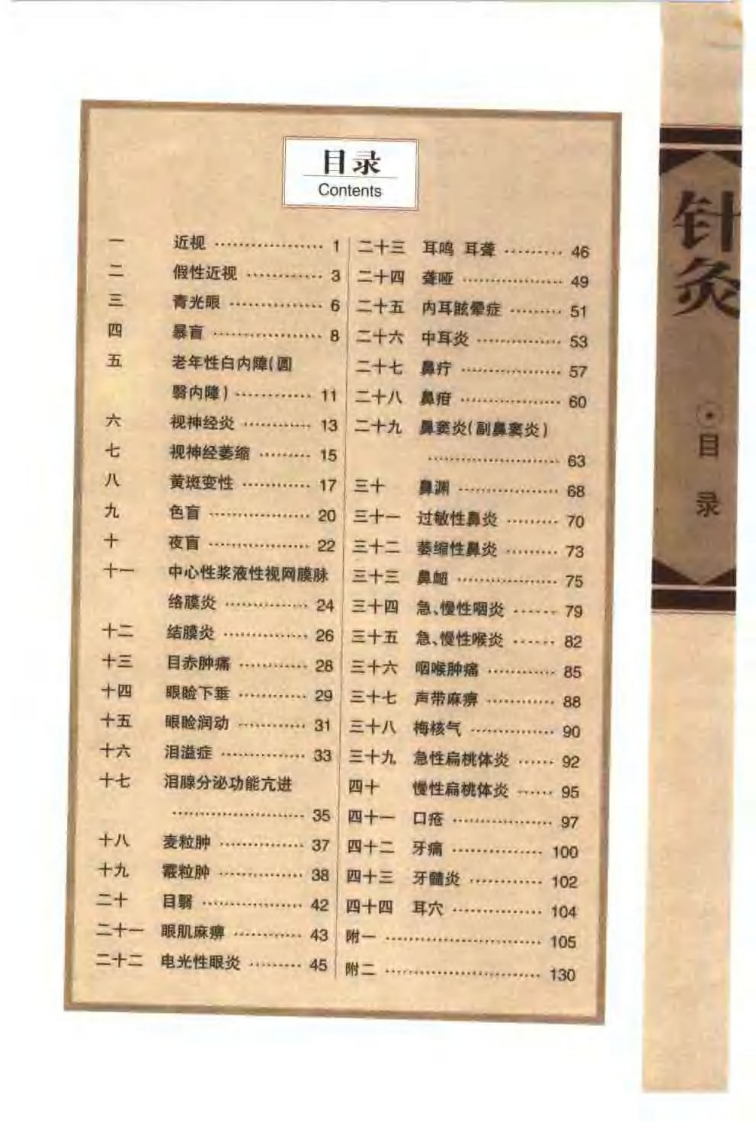 目录
Contents
一 近视 ……………… 1
二 假性近视 ………… 3
三 青光眼 …………… 6
四 暴盲 ……………… 8
五 老年性白内障(圆
翳内障) ………… 11
六 视神经炎 ………… 13
七 视神经萎缩 ……… 15
八 黄斑变性 ………… 17
九 色盲 ……………… 20
十 夜盲 ……………… 22
十一 中心性浆液性视网膜脉
络膜炎 ………… 24
十二 结膜炎 ………… 26
十三 目赤肿痛 ……… 28
十四 眼睑下垂 ……… 29
十五 眼睑润动 ……… 31
十六 泪溢症 ………… 33
十七 泪腺分泌功能亢进
………………… 35
十八 麦粒肿 ………… 37
十九 霰粒肿 ………… 38
二十 目翳 …………… 42
二十一 眼肌麻痹 …… 43
二十二 电光性眼炎 … 45
二十三 耳鸣 耳聋 …… 46
二十四 聋哑 ………… 49
二十五 内耳眩晕症 … 51
二十六 中耳炎 ……… 53
二十七 鼻疔 ………… 57
二十八 鼻疳 ………… 60
二十九 鼻窦炎(副鼻窦炎)
………………… 63
三十 鼻渊 …………… 68
三十一 过敏性鼻炎 … 70
三十二 萎缩性鼻炎 … 73
三十三 鼻衄 ………… 75
三十四 急、慢性咽炎 … 79
三十五 急、慢性喉炎 … 82
三十六 咽喉肿痛 …… 85
三十七 声带麻痹 …… 88
三十八 梅核气 ……… 90
三十九 急性扁桃体炎 … 92
四十 慢性扁桃体炎 … 95
四十一 口疮 ………… 97
四十二 牙痛 ………… 100
四十三 牙髓炎 ……… 102
四十四 耳穴 ………… 104
附一 ………………… 105
附二 ………………… 130
针灸
目录